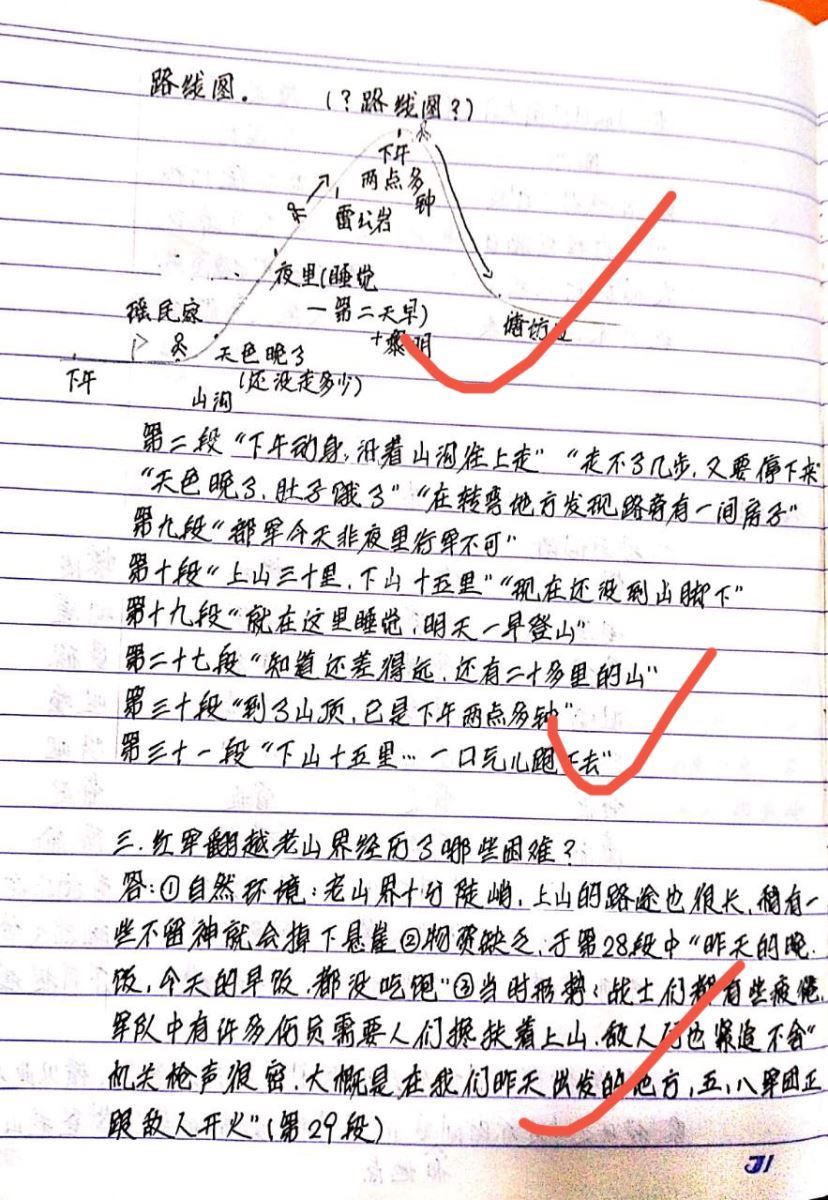 路线图。 (?路线图?)
下午
两点多
钟
雷公岩
夜里(睡觉
一第二天早)
+黎明
瑶民家
塘坊边
天色晚了
(还没走多少)
下午
山沟
第二段“下午动身,沿着山沟往上走” “走不了几步,又要停下来
“天色晚了,肚子饿了” “在转弯地方发现路旁有一间房子”
第九段“部军今天非夜里行军不可”
第十段“上山三十里,下山十五里” “现在还没到山脚下”
第十九段“就在这里睡觉,明天一早登山”
第二十七段“知道还差得远,还有二十多里的山”
第三十段“到了山顶,已是下午两点多钟”
第三十一段“下山十五里…一口气儿跑下去”
三.红军翻越老山界经历了哪些困难?
答:①自然环境:老山界十分陡峭,上山的路途也很长,稍有一
些不留神就会掉下悬崖②物资缺乏,于第28段中“昨天的晚
饭,今天的早饭,都没吃饱”③当时形势:战士们都有些疲倦,
军队中有许多伤员需要人们搀扶着上山,敌人们也紧追不舍“
机关枪声很密,大概是在我们昨天出发的地方,五、八军团正
跟敌人开火”(第29段)